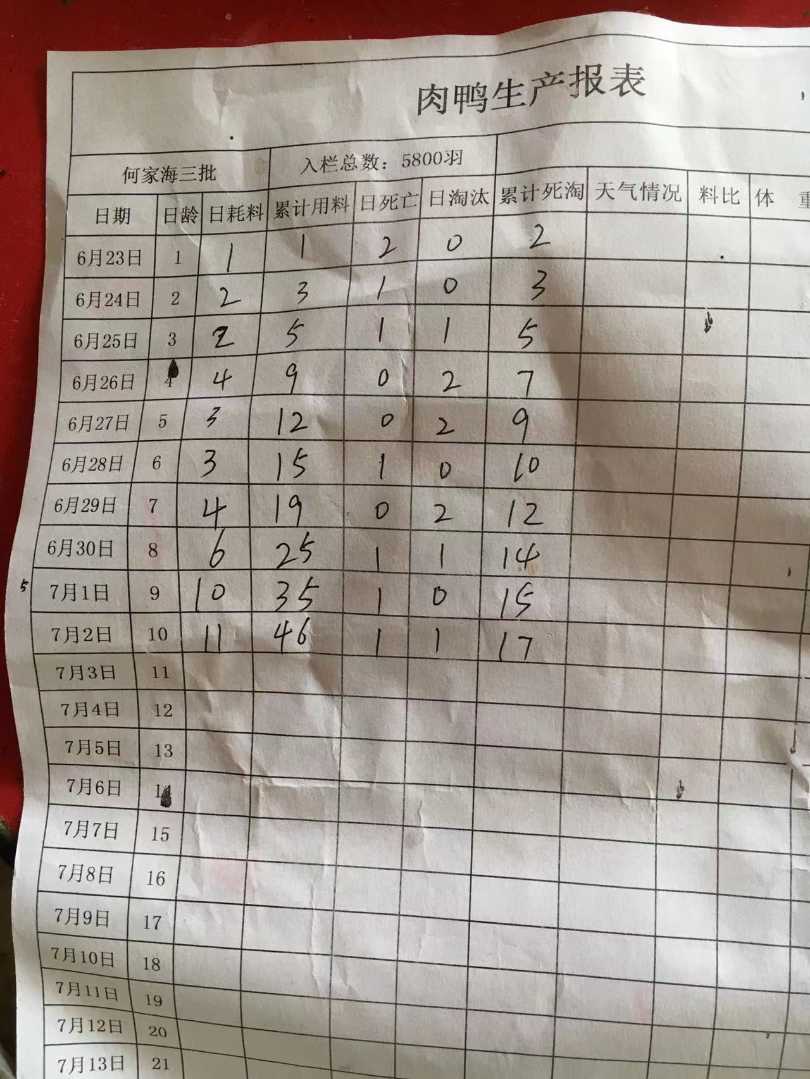 肉鸭生产报表
何家海三批 入栏总数：5800羽
日期 日龄 日耗料 累计用料 日死亡 日淘汰 累计死淘 天气情况 料比 体 重
6月23日 1 1 1 2 0 2
6月24日 2 2 3 1 0 3
6月25日 3 2 5 1 1 5
6月26日 4 4 9 0 2 7
6月27日 5 3 12 0 2 9
6月28日 6 3 15 1 0 10
6月29日 7 4 19 0 2 12
6月30日 8 6 25 1 1 14
7月1日 9 10 35 1 0 15
7月2日 10 11 46 1 1 17
7月3日 11
7月4日 12
7月5日 13
7月6日
7月7日 15
7月8日 16
7月9日 17
7月10日 18
7月11日 19
7月12日 20
7月13日 21